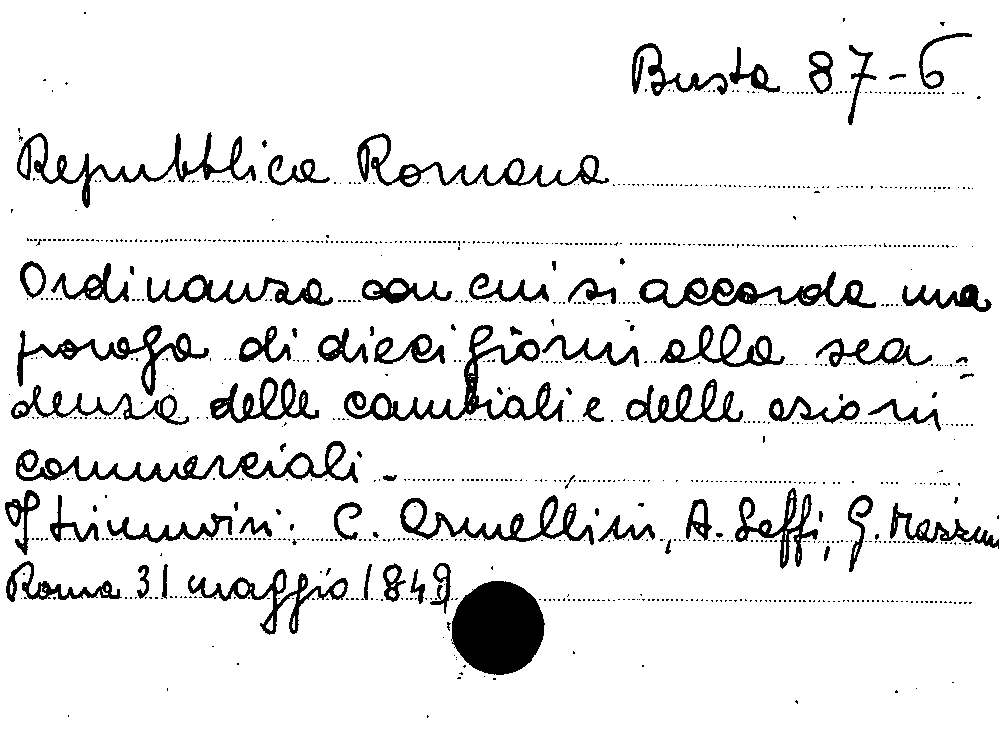 Busta 87-6
Repubblica Romana
Ordinanza con cui si accorda una
proroga di dieci giorni alla sca-
denza delle cambiali e delle azioni
commerciali.-
I triumviri: C. Armellini, A. Saffi, G. Mazzini
Roma 31 maggio 1849